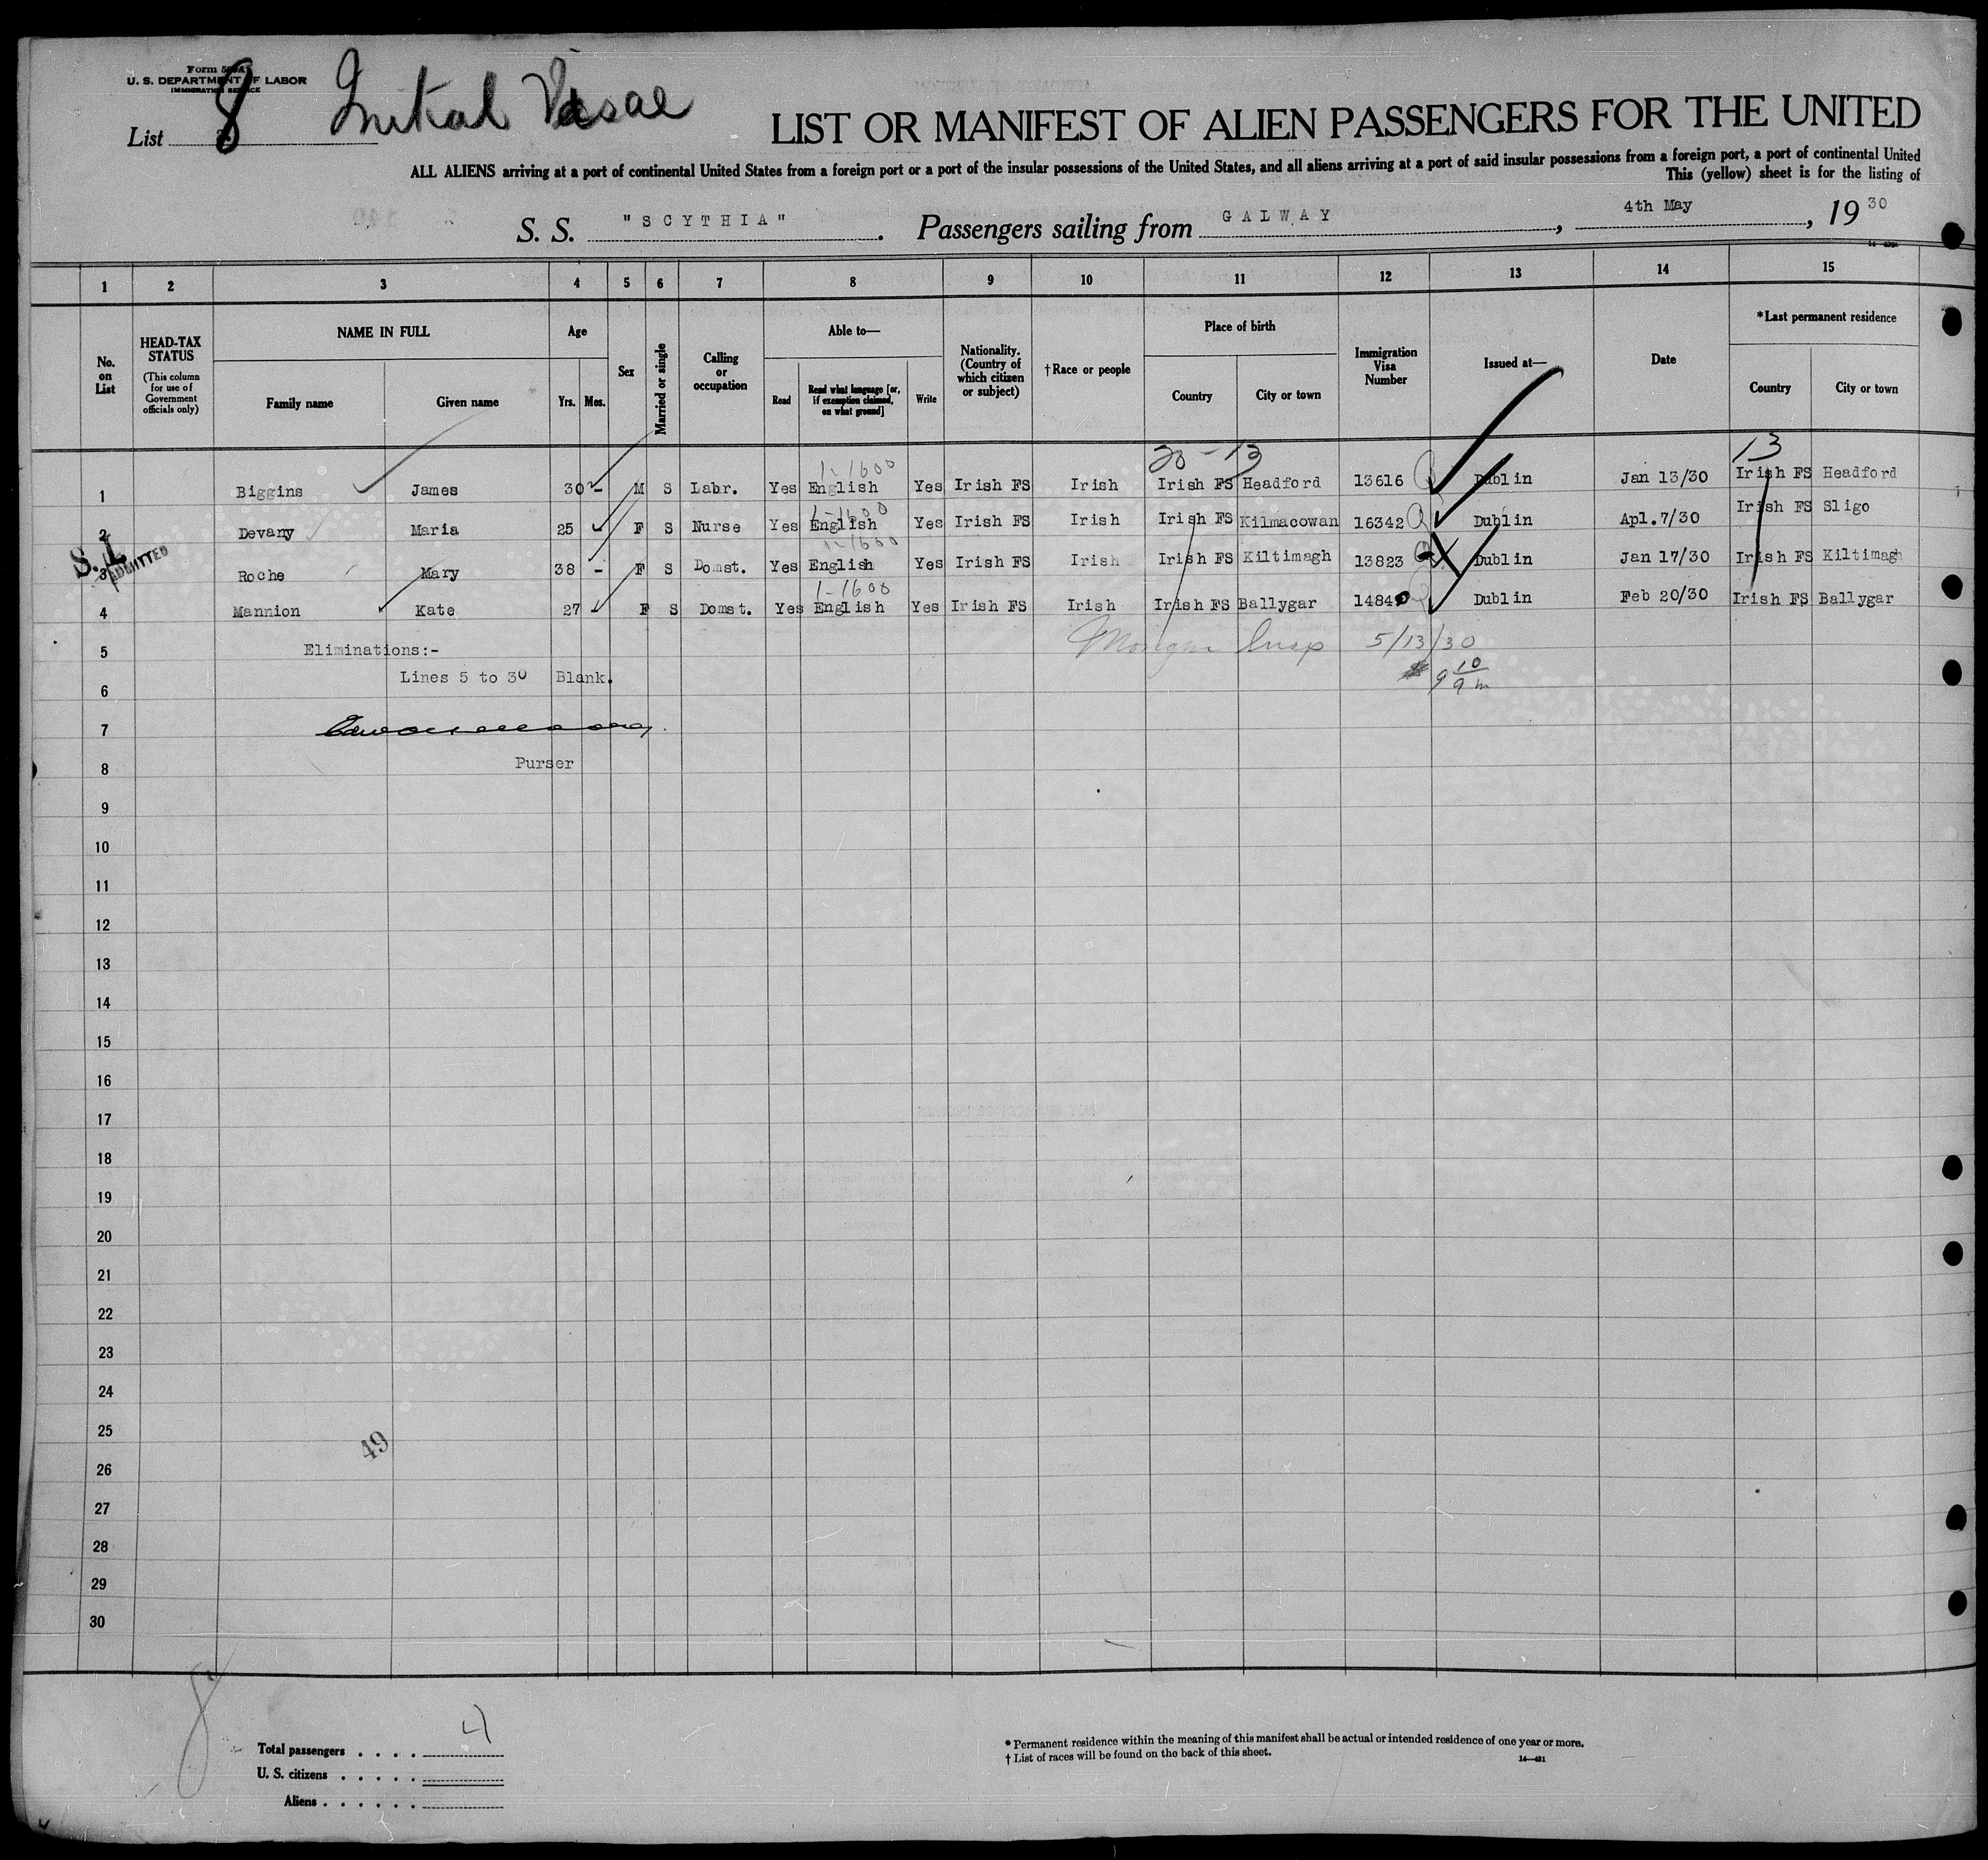 Form 500A
U. S. DEPARTMENT OF LABOR
IMMIGRATION SERVICE
List 8
Initial Visae
LIST OR MANIFEST OF ALIEN PASSENGERS FOR THE UNITED
ALL ALIENS arriving at a port of continental United States from a foreign port or a port of the insular possessions of the United States, and all aliens arriving at a port of said insular possessions from a foreign port, a port of continental United
This (yellow) sheet is for the listing of
S. S. "SCYTHIA". Passengers sailing from GALWAY, 4th May, 1930
1 2 3 4 5 6 7 8 9 10 11 12 13 14 15
No. on List
HEAD-TAX STATUS
(This column for use of Government officials only)
NAME IN FULL
Family name Given name
Age
Yrs. Mos.
Sex
Married or single
Calling or occupation
Able to—
Read
Read what language [or, if exemption claimed, on what ground]
Write
Nationality. (Country of which citizen or subject)
†Race or people
Place of birth
Country City or town
Immigration Visa Number
Issued at—
Date
*Last permanent residence
Country City or town
20-13 13
1-1600
1 Biggins James 30 - M S Labr. Yes English Yes Irish FS Irish Irish FS Headford 13616 Q Dublin Jan 13/30 Irish FS Headford
1-1600
2 Devany Maria 25 F S Nurse Yes English Yes Irish FS Irish Irish FS Kilmacowan 16342 Q Dublin Apl. 7/30 Irish FS Sligo
1-1600
S.I. ADMITTED
3 Roche Mary 38 - F S Domst. Yes English Yes Irish FS Irish Irish FS Kiltimagh 13823 Dublin Jan 17/30 Irish FS Kiltimagh
1-1600
4 Mannion Kate 27 F S Domst. Yes English Yes Irish FS Irish Irish FS Ballygar 14840 Q Dublin Feb 20/30 Irish FS Ballygar
5 Eliminations:- Insp 5/13/30
6 Lines 5 to 30 Blank. 9 10/9 m
7
8 Purser
9
10
11
12
13
14
15
16
17
18
19
20
21
22
23
24
25
49
26
27
28
29
30
8
Total passengers . . . . 4
U. S. citizens . . . . .
Aliens . . . . . .
* Permanent residence within the meaning of this manifest shall be actual or intended residence of one year or more.
† List of races will be found on the back of this sheet.
14—431